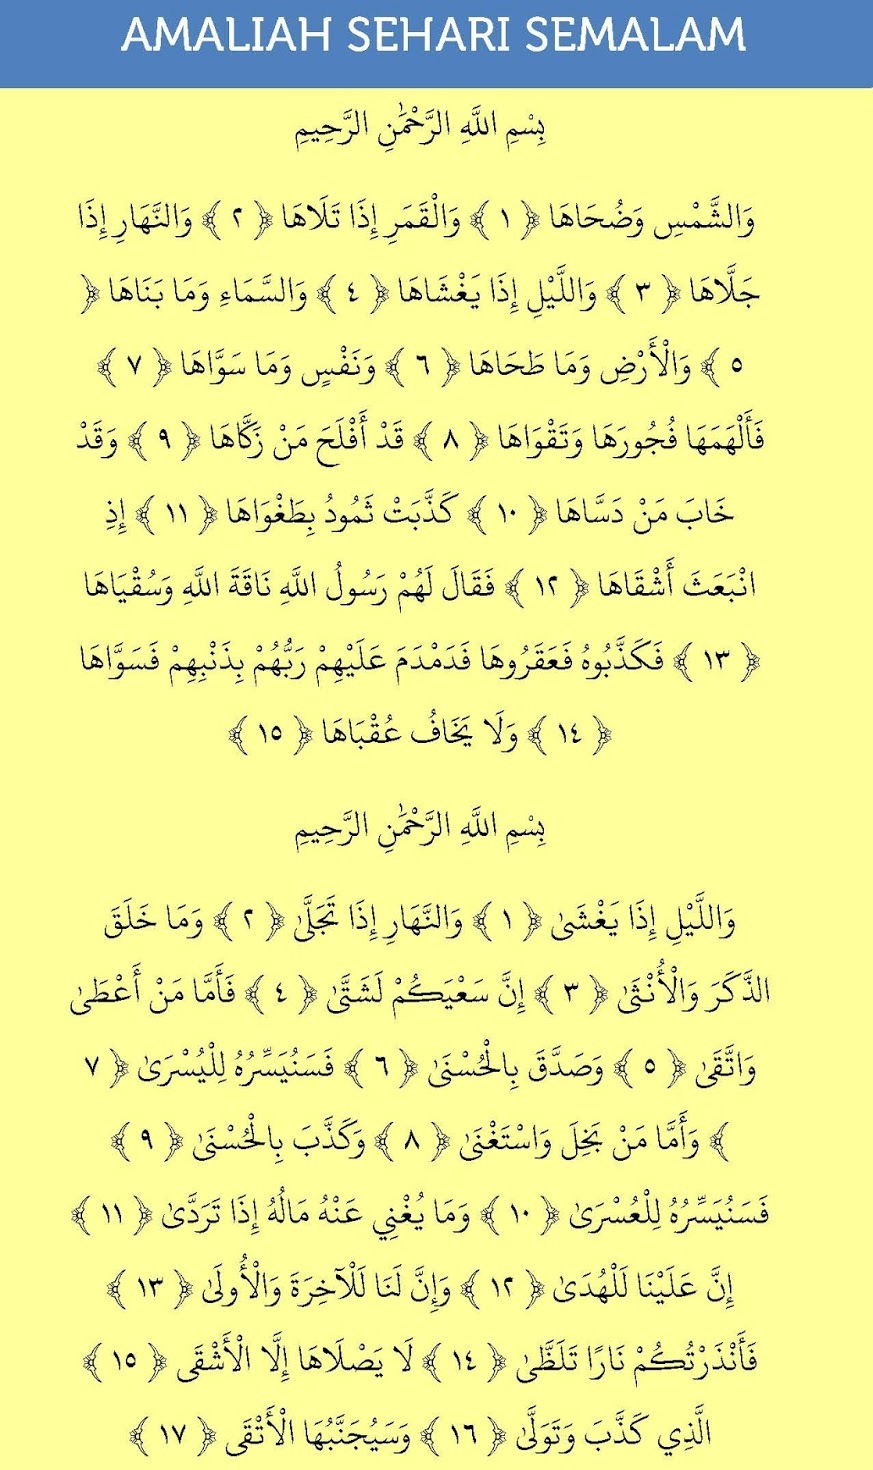 AMALIAH SEHARI SEMALAM
بِسْمِ اللَّهِ الرَّحْمَٰنِ الرَّحِيمِ
وَالشَّمْسِ وَضُحَاهَا ﴿ ١ ﴾ وَالْقَمَرِ إِذَا تَلَاهَا ﴿ ٢ ﴾ وَالنَّهَارِ إِذَا
جَلَّاهَا ﴿ ٣ ﴾ وَاللَّيْلِ إِذَا يَغْشَاهَا ﴿ ٤ ﴾ وَالسَّمَاءِ وَمَا بَنَاهَا ﴿
٥ ﴾ وَالْأَرْضِ وَمَا طَحَاهَا ﴿ ٦ ﴾ وَنَفْسٍ وَمَا سَوَّاهَا ﴿ ٧ ﴾
فَأَلْهَمَهَا فُجُورَهَا وَتَقْوَاهَا ﴿ ٨ ﴾ قَدْ أَفْلَحَ مَنْ زَكَّاهَا ﴿ ٩ ﴾ وَقَدْ
خَابَ مَنْ دَسَّاهَا ﴿ ١٠ ﴾ كَذَّبَتْ ثَمُودُ بِطَغْوَاهَا ﴿ ١١ ﴾ إِذِ
انْبَعَثَ أَشْقَاهَا ﴿ ١٢ ﴾ فَقَالَ لَهُمْ رَسُولُ اللَّهِ نَاقَةَ اللَّهِ وَسُقْيَاهَا
﴿ ١٣ ﴾ فَكَذَّبُوهُ فَعَقَرُوهَا فَدَمْدَمَ عَلَيْهِمْ رَبُّهُمْ بِذَنْبِهِمْ فَسَوَّاهَا
﴿ ١٤ ﴾ وَلَا يَخَافُ عُقْبَاهَا ﴿ ١٥ ﴾
بِسْمِ اللَّهِ الرَّحْمَٰنِ الرَّحِيمِ
وَاللَّيْلِ إِذَا يَغْشَىٰ ﴿ ١ ﴾ وَالنَّهَارِ إِذَا تَجَلَّىٰ ﴿ ٢ ﴾ وَمَا خَلَقَ
الذَّكَرَ وَالْأُنْثَىٰ ﴿ ٣ ﴾ إِنَّ سَعْيَكُمْ لَشَتَّىٰ ﴿ ٤ ﴾ فَأَمَّا مَنْ أَعْطَىٰ
وَاتَّقَىٰ ﴿ ٥ ﴾ وَصَدَّقَ بِالْحُسْنَىٰ ﴿ ٦ ﴾ فَسَنُيَسِّرُهُ لِلْيُسْرَىٰ ﴿ ٧
﴾ وَأَمَّا مَنْ بَخِلَ وَاسْتَغْنَىٰ ﴿ ٨ ﴾ وَكَذَّبَ بِالْحُسْنَىٰ ﴿ ٩ ﴾
فَسَنُيَسِّرُهُ لِلْعُسْرَىٰ ﴿ ١٠ ﴾ وَمَا يُغْنِي عَنْهُ مَالُهُ إِذَا تَرَدَّىٰ ﴿ ١١ ﴾
إِنَّ عَلَيْنَا لَلْهُدَىٰ ﴿ ١٢ ﴾ وَإِنَّ لَنَا لَلْآخِرَةَ وَالْأُولَىٰ ﴿ ١٣ ﴾
فَأَنْذَرْتُكُمْ نَارًا تَلَظَّىٰ ﴿ ١٤ ﴾ لَا يَصْلَاهَا إِلَّا الْأَشْقَى ﴿ ١٥ ﴾
الَّذِي كَذَّبَ وَتَوَلَّىٰ ﴿ ١٦ ﴾ وَسَيُجَنَّبُهَا الْأَتْقَى ﴿ ١٧ ﴾